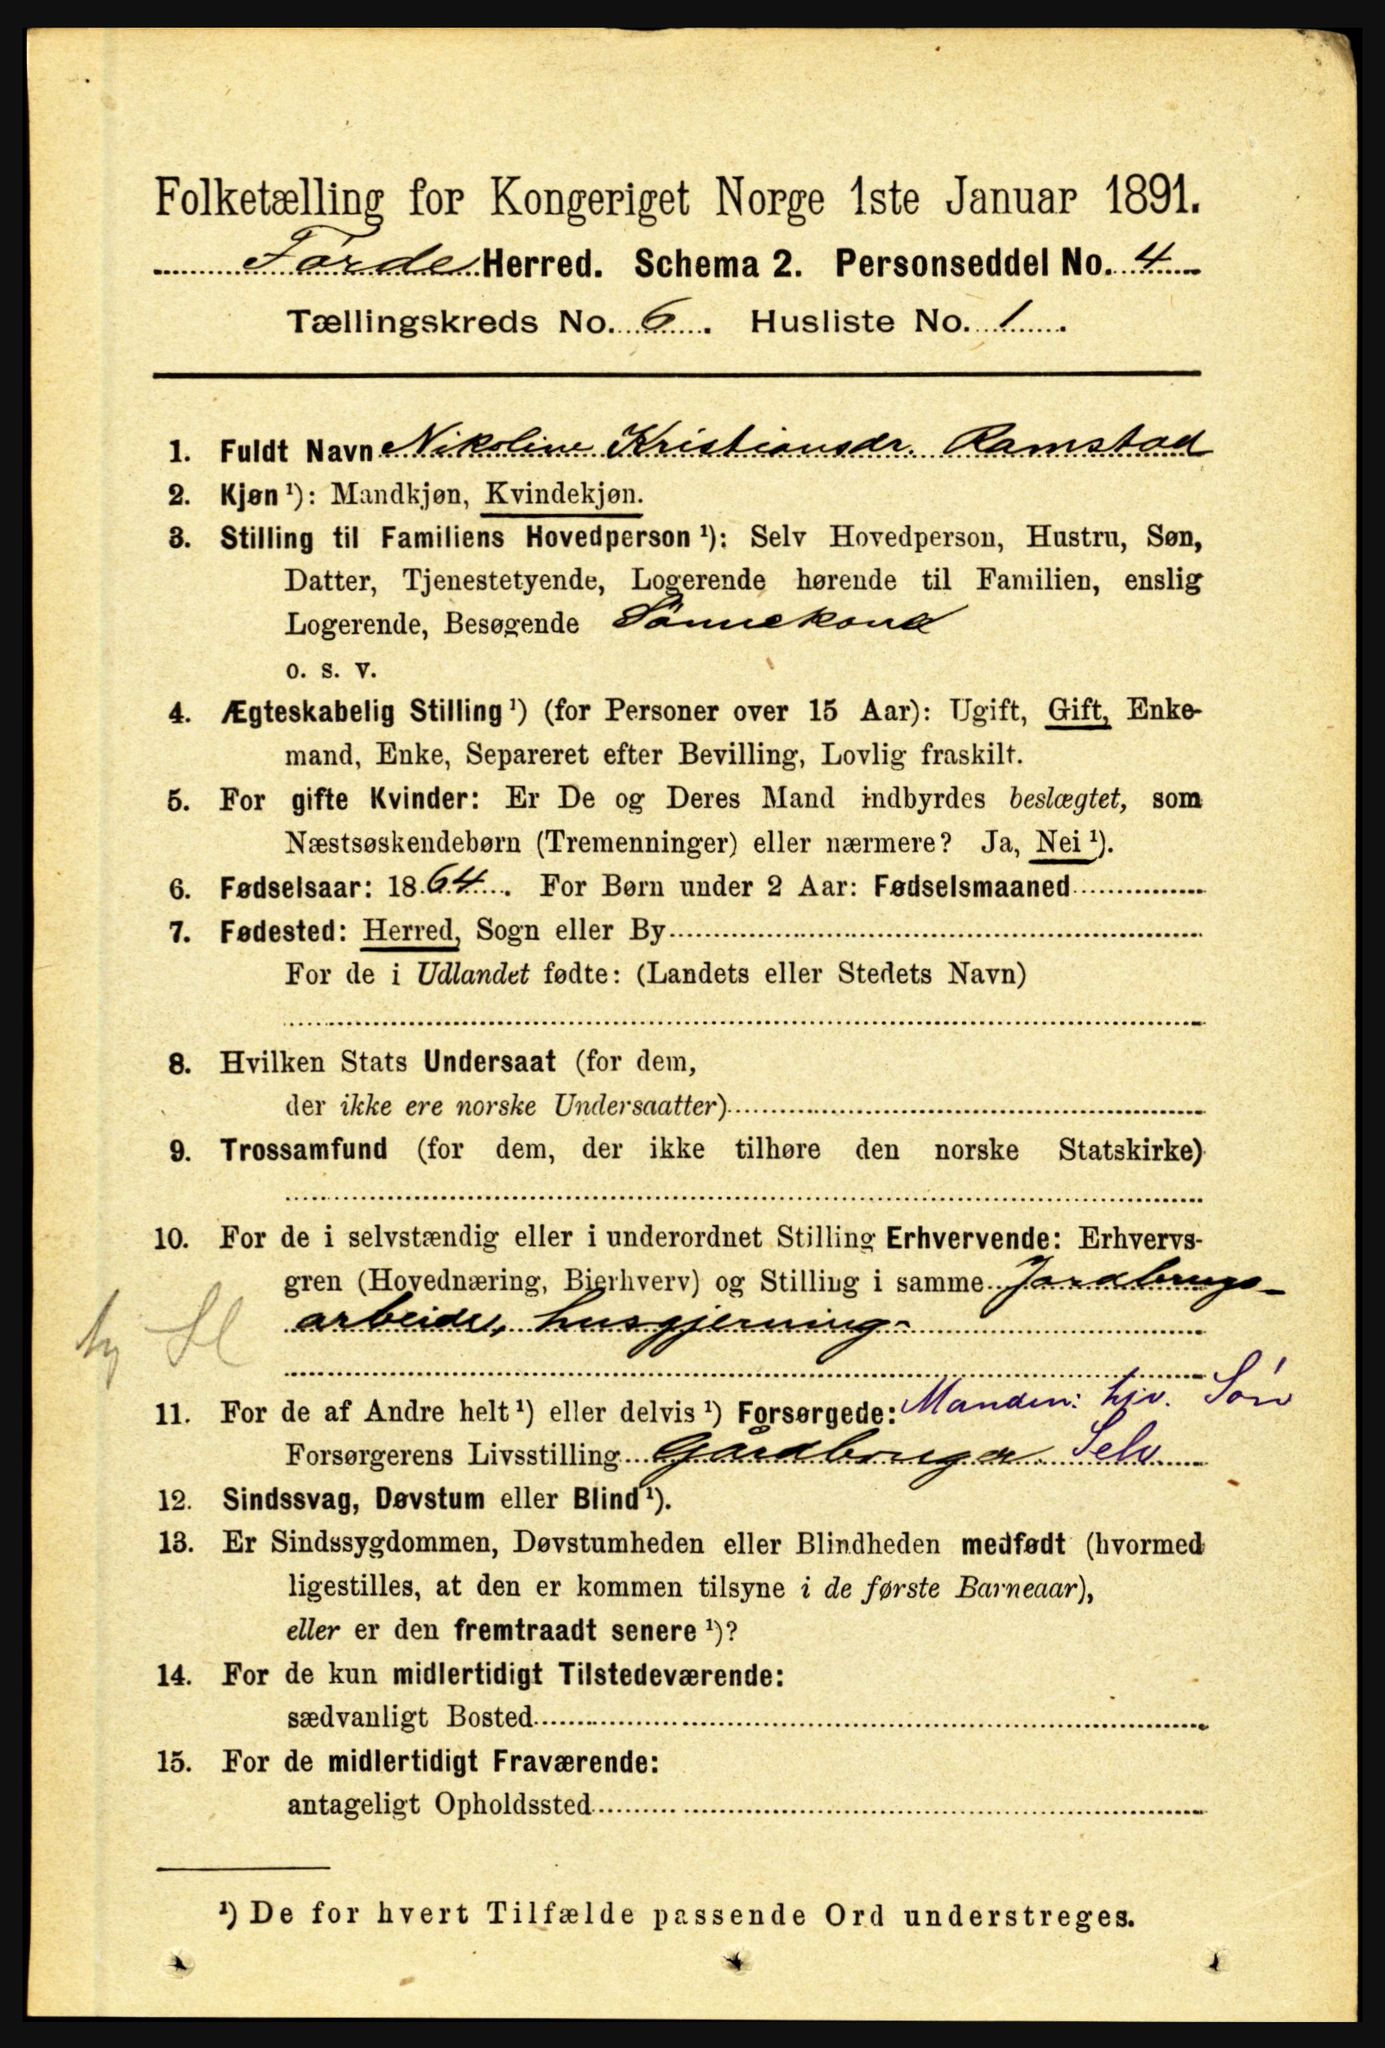 Folketælling for Kongeriget Norge 1ste Januar 1891.
Førde Herred. Schema 2. Personseddel No. 4
Tællingskreds No. 6. Husliste No. 1.
1. Fuldt Navn Nikoline Kristiansdr. Ramstad
2. Kjøn ¹): Mandkjøn, Kvindekjøn.
3. Stilling til Familiens Hovedperson ¹): Selv Hovedperson, Hustru, Søn,
Datter, Tjenestetyende, Logerende hørende til Familien, enslig
Logerende, Besøgende Sønnekone
o. s. v.
4. Ægteskabelig Stilling ¹) (for Personer over 15 Aar): Ugift, Gift, Enke-
mand, Enke, Separeret efter Bevilling, Lovlig fraskilt.
5. For gifte Kvinder: Er De og Deres Mand indbyrdes beslægtet, som
Næstsøskendebørn (Tremenninger) eller nærmere? Ja, Nei ¹).
6. Fødselsaar: 1864. For Børn under 2 Aar: Fødselsmaaned
7. Fødested: Herred, Sogn eller By
For de i Udlandet fødte: (Landets eller Stedets Navn)
8. Hvilken Stats Undersaat (for dem,
der ikke ere norske Undersaatter)
9. Trossamfund (for dem, der ikke tilhøre den norske Statskirke)
10. For de i selvstændig eller i underordnet Stilling Erhvervende: Erhvervs-
gren (Hovednæring, Bierhverv) og Stilling i samme Jordbrugs-
arbeide, husgjerning-
11. For de af Andre helt ¹) eller delvis ¹) Forsørgede: Manden: hjv. Søn
Forsørgerens Livsstilling Gårdbruger Selv
12. Sindssvag, Døvstum eller Blind ¹).
13. Er Sindssygdommen, Døvstumheden eller Blindheden medfødt (hvormed
ligestilles, at den er kommen tilsyne i de første Barneaar),
eller er den fremtraadt senere ¹)?
14. For de kun midlertidigt Tilstedeværende:
sædvanligt Bosted
15. For de midlertidigt Fraværende:
antageligt Opholdssted
¹) De for hvert Tilfælde passende Ord understreges.